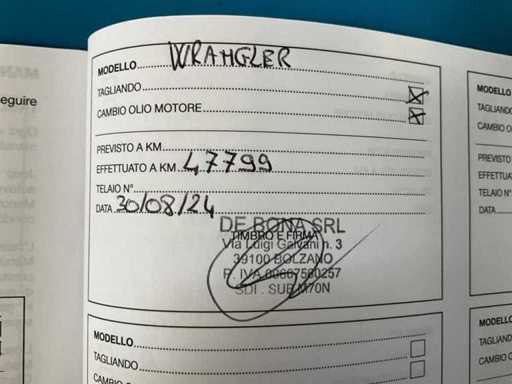 MAN
eguire
MODELLO WRANGLER
TAGLIANDO
CAMBIO OLIO MOTORE
PREVISTO A KM
EFFETTUATO A KM 47799
TELAIO N°
DATA 30/08/24
DE BONA SRL
TIMBRO E FIRMA
Via Luigi Galvani n. 3
39100 BOLZANO
P. IVA
SDI. SUBM70N
MODELLO
TAGLIANDO
CAMBIO
MODELLO
TAGLIANDO
CAMBIO OL
PREVISTO
EFFETTUAT
TELAIO N°
DATA
MODELLO
TAGLIAND
CAMBIO